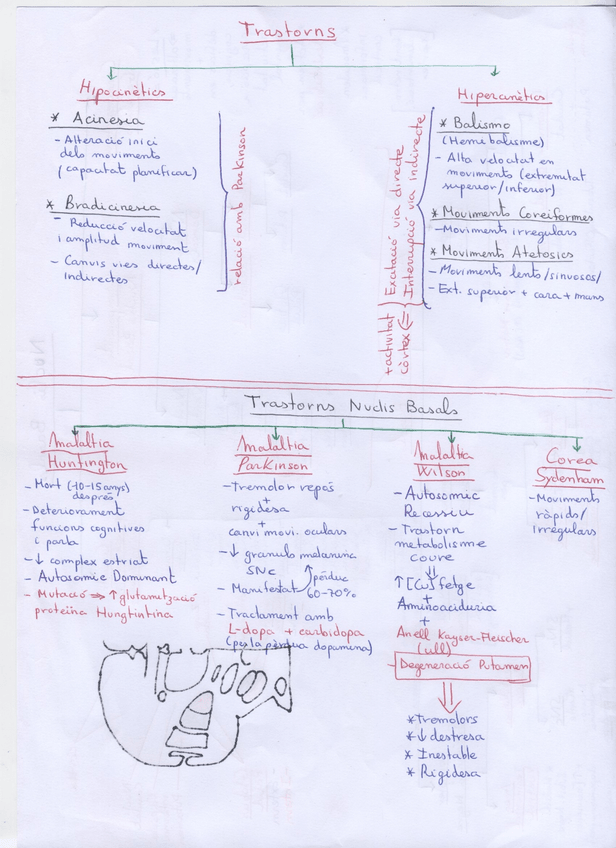 Trastorns
Hipocinètics
* Acinesia
- Alteració inici
dels moviments
(capacitat planificar)
* Bradicinesia
- Reducció velocitat
i amplitud moviment
- Canvis vies directes/
indirectes
relació amb Parkinson
Hipercinètics
* Balismo
(Hemibalisme)
- Alta velocitat en
moviments (extremitat
superior/inferior)
* Moviments Coreiformes
- Moviments irregulars
* Moviments Atetosics
- Moviments lents/sinuosos/
- Ext. superior + cara + mans
Excitació via directe
Interrupció via indirecte
⇓
+ activitat
còrtex
Trastorns Nuclis Basals
Malaltia
Huntington
- Mort (-10-15 anys)
després
- Deteriorament
funcions cognitives
i parla
- ↓ complex estriat
- Autosomic Dominant
- Mutació ⇒ ↑ glutamització
proteïna Hungtintina
Malaltia
Parkinson
- Tremolor repòs
+
rigidesa
+
canvi movi. oculars
- ↓ granuls melanina
SNc ↑ pèrdua
- Manifestat 60-70%
- Tractament amb
L-dopa + carbidopa
(per la pèrdua dopamina)
Malaltia
Wilson
- Autosomic
Recessiu
- Trastorn
metabolisme
coure
⇓
↑ [Cu] fetge
+
Aminoaciduria
+
Anell Kayser-Fleischer
(ull)
- Degeneració Putamen
⇓
* Tremolors
* ↓ destresa
* Inestable
* Rigidesa
Corea
Sydenham
- Moviments
ràpids/
irregulars